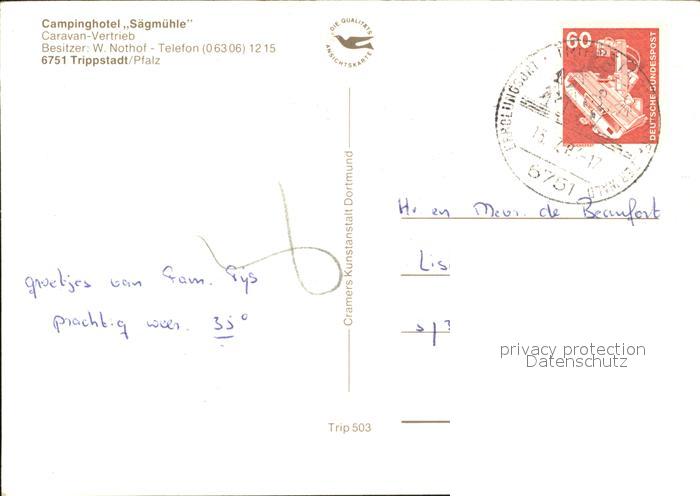 Campinghotel „Sägmühle"
Caravan-Vertrieb
Besitzer: W. Nothof - Telefon (0 63 06) 12 15
6751 Trippstadt/Pfalz
DIE QUALITÄTS
ANSICHTSKARTE
60
DEUTSCHE BUNDESPOST
ERHOLUNGSORT
6751
Cramers Kunstanstalt Dortmund
Hr en Mevr. de Beaufort
groetjes van Fam. Tys
prachtig weer. 35°
privacy protection
Datenschutz
Trip 503